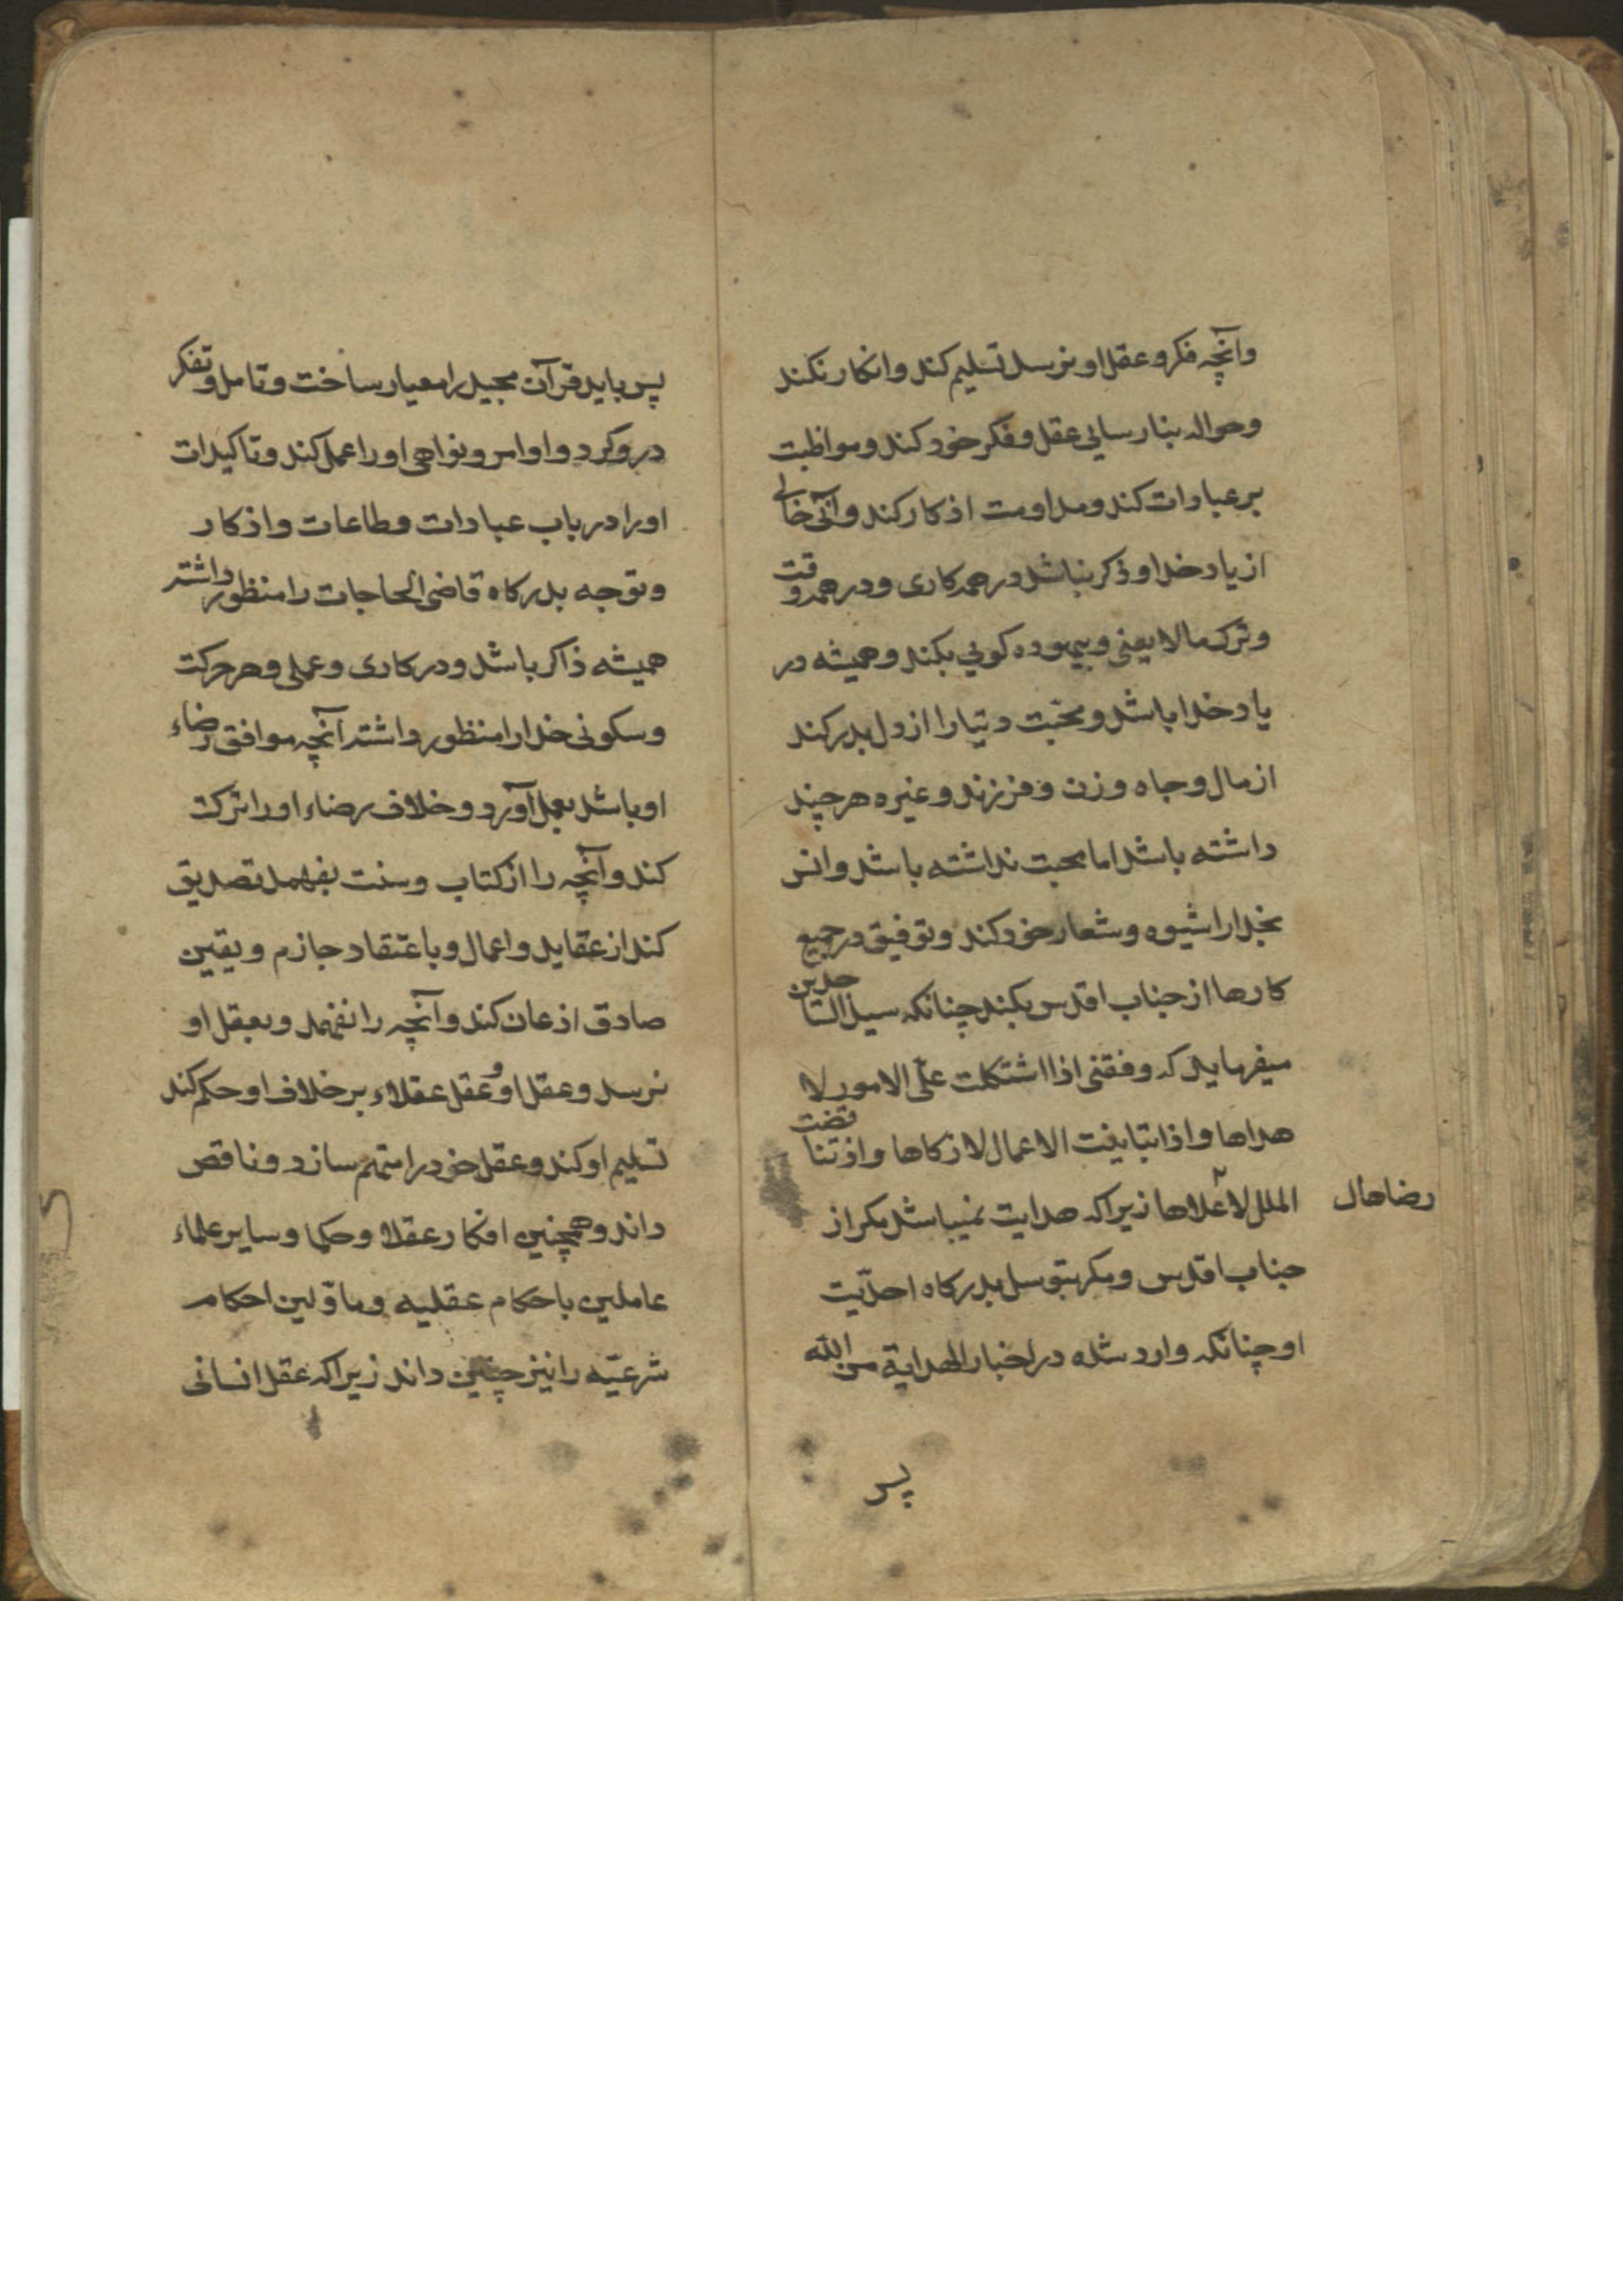 وآنچه فکر و عقل او نرسد تسلیم کند وانکار نکند
وحواله بنارسایی عقل و فکر خود کند ومواظبت
بر عبادات کند ومداومت اذکار کند وآنی خالی
از یاد خدا و ذکر نباشد در همه کاری ودر همه وقت
وترک مالا یعنی وبیهوده کویی بکند وهمیشه در
یاد خدا باشد ومحبّت دنیا را از دل بدر کند
از مال وجاه وزن وفرزند وغیره هر چند
داشته باشد اما محبت نداشته باشد وانس
بخدا را شیوه وشعار خود کند وتوفیق در جمیع
کارها از جناب اقدس بکند چنانکه سید الساجدین
میفرماید که وفقنی اذا اشتکلت علیّ الامور لا
هداها واذا تشابهت الاعمال لازکاها واذ تناقضت
الملل لا علاها زیرا که هدایت نمیباشد مکر از
رضاها ل
جناب اقدس ومکر بتوسل بدرکاه احدیّت
او چنانکه وارد شده در اخبار الهدایة من الله
پس
پس باید قرآن مجید را معیار ساخت وتامل وتفکر
در و کرد واوامر ونواهی اورا عمل کند وتاکیدات
اورا در باب عبادات وطاعات واذکار
وتوجه بدرکاه قاضی الحاجات را منظور داشته
همیشه ذاکر باشد ودر کاری وعملی وهر حرکت
وسکونی خدا را منظور داشته آنچه موافق رضاء
او باشد بعمل آورد وخلاف رضاء اورا ترک
کند وآنچه را از کتاب وسنت بفهمد تصدیق
کند از عقاید واعمال وباعتقاد جازم ویقین
صادق اذعان کند وآنچه را نفهمد وبعقل او
نرسد وعقل او وعقل عقلاء بر خلاف او حکم کند
تسلیم او کند وعقل خود را متهم سازد وناقص
داند وهمچنین افکار عقلا وحکما وسایر علماء
عاملین باحکام عقلیه وماوّلین احکام
شرعیّه را نیز چنین داند زیرا که عقل انسانی